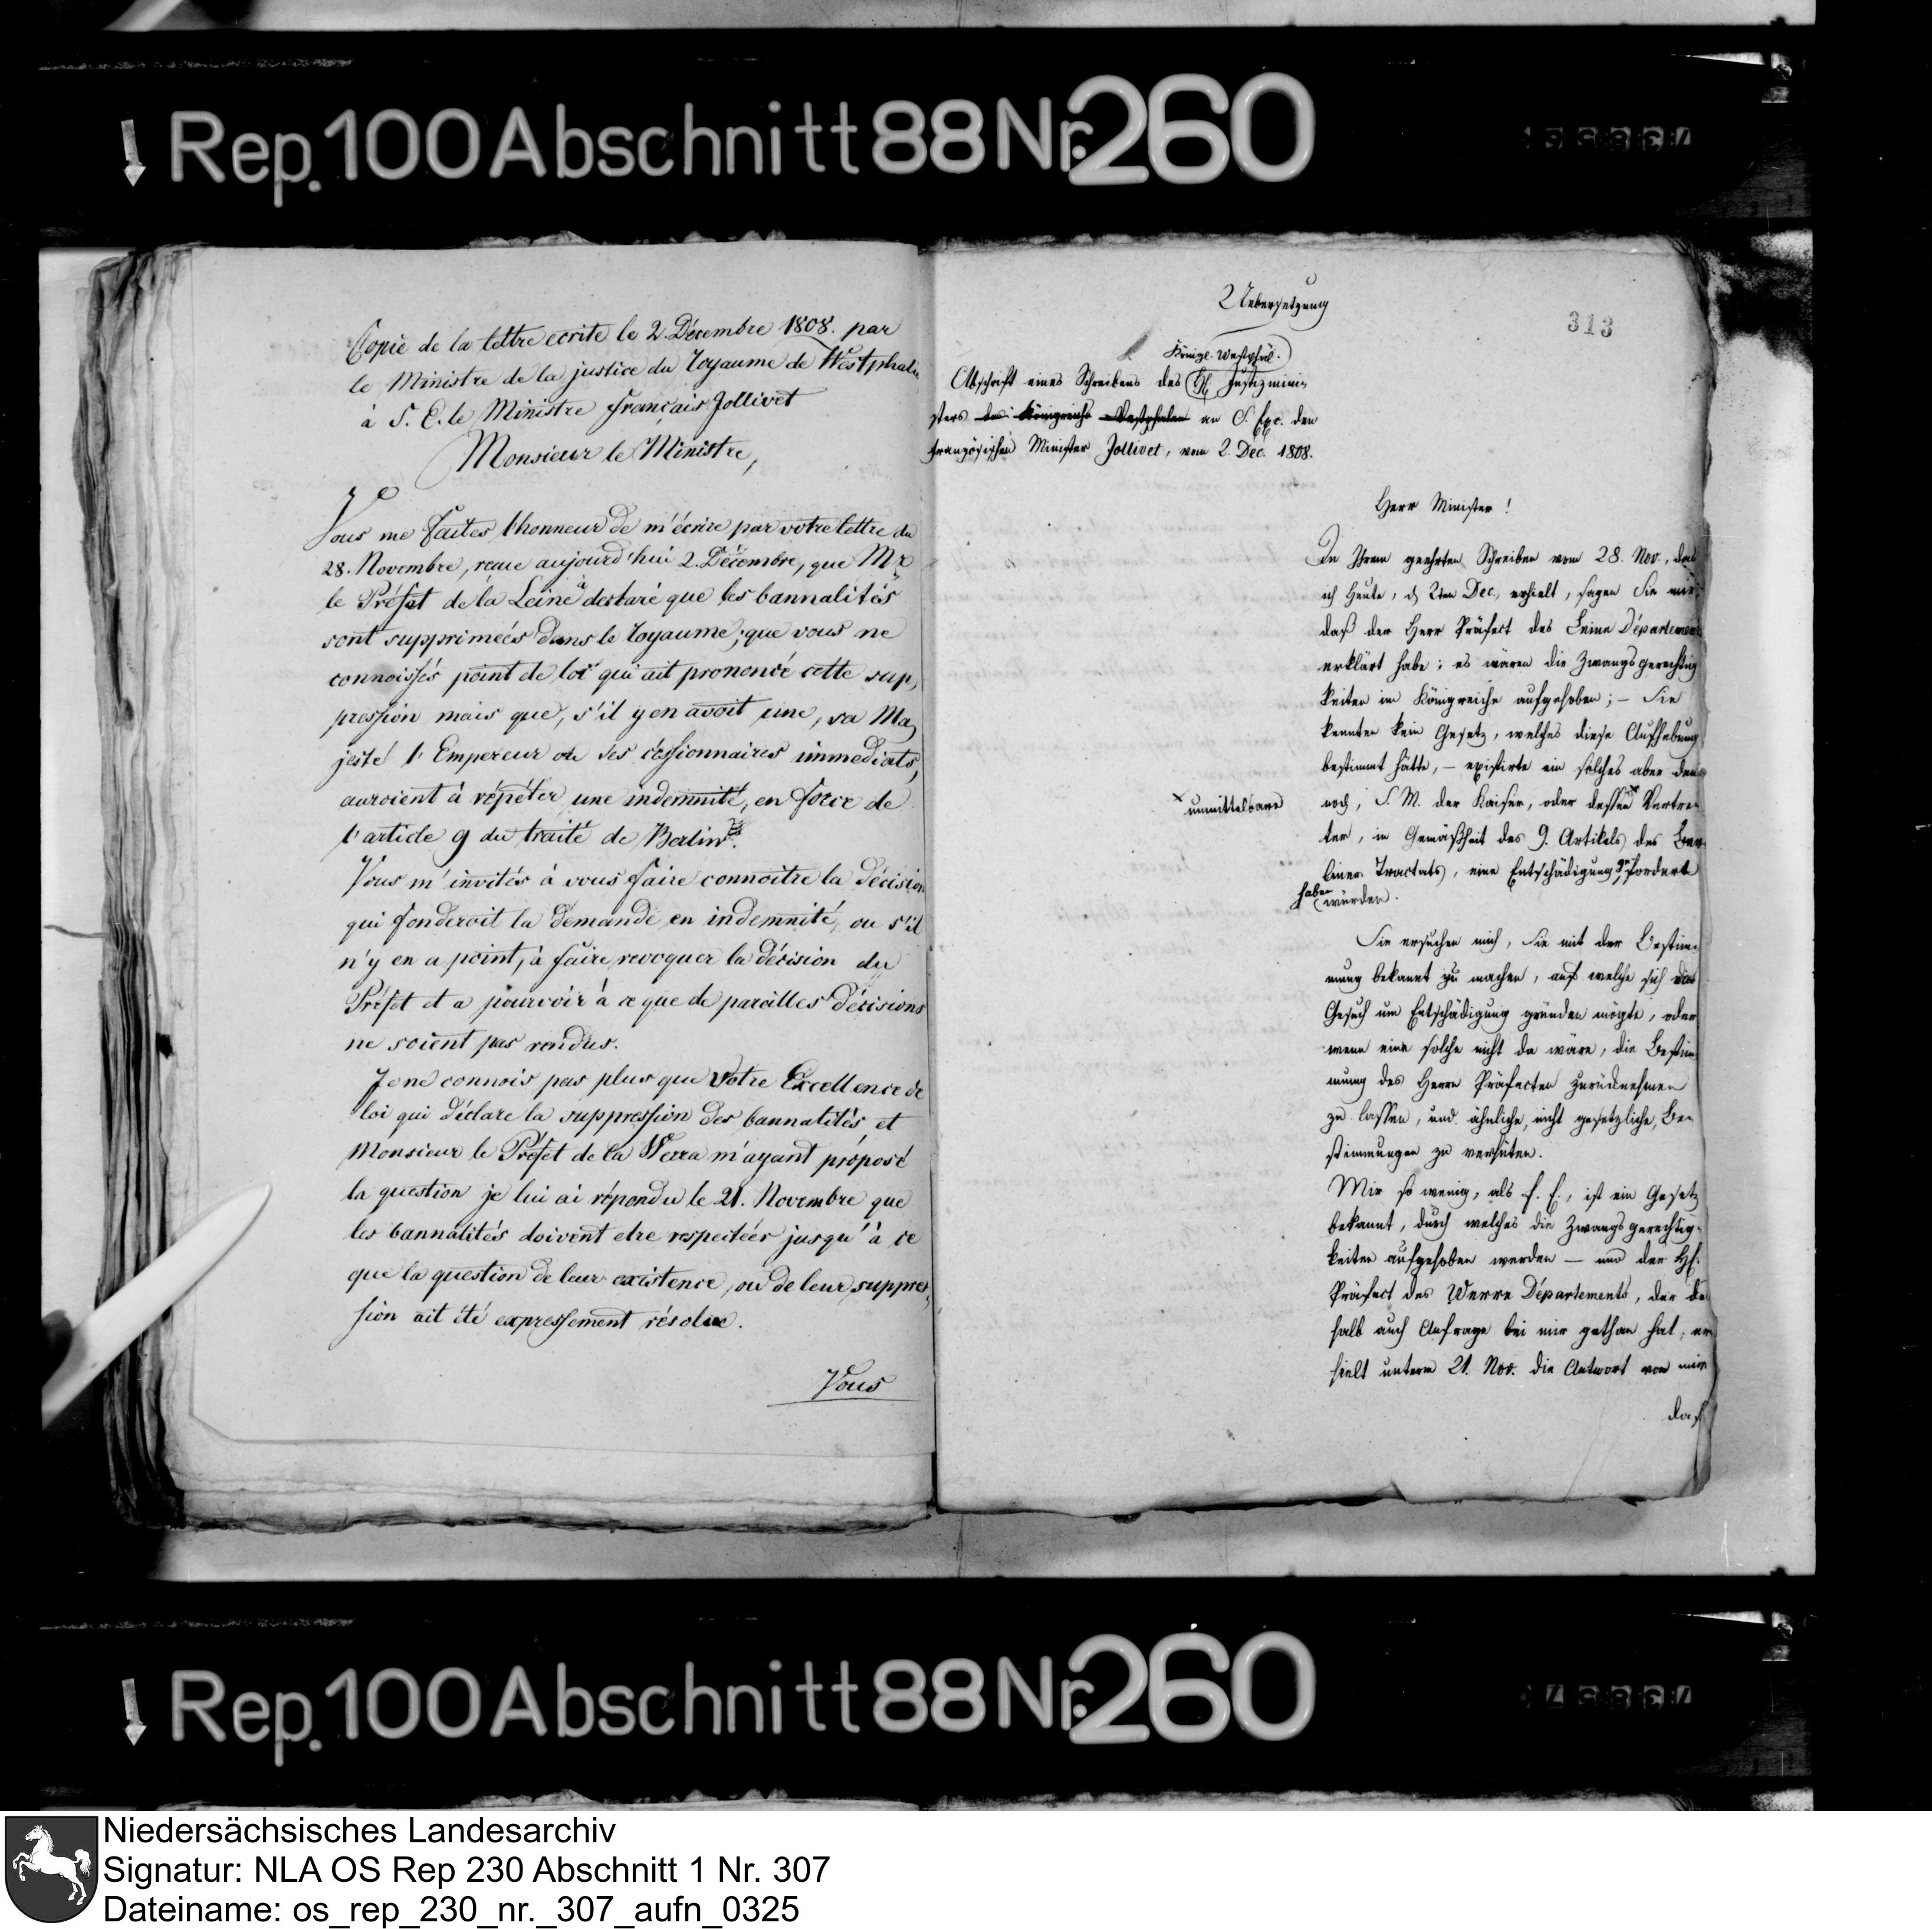 Rep. 100 Abschnitt 88 Nr. 260
Copie de la lettre ecrite le 2. Décembre 1808. par
le Ministre de la justice du royaume de Westphalie
à S. E. le Ministre français Jollivet
Monsieur le Ministre,
Vous me faites l'honneur de m'écrire par votre lettre du
28. Novembre, recue aujourd'hui 2. Décembre, que Mr
le Préfet de la Leine à declaré que les bannalités
sont supprimeés dans le royaume; que vous ne
connoissés point de loi qui ait prononcé cette sup,
pression mais que, s'il y en avoit une, sa Ma,
jesté l'Empereur ou ses cessionnaires immediats,
auroient à répéter une indemnité, en force de
l'article 9 du traité de Berlin.
Vous m'invités à vous faire connoitre la décision
qui fonderoit la demande en indemnité, ou s'il
n'y en a point, à faire revoquer la décision du
Préfet et a pourvoir à ce que de pareilles décisions
ne soient pas rendus.
Je ne connois pas plus que Votre Excellence de
loi qui déclare la suppression des bannalités, et
Monsieur le Préfet de la Werra m'ayant proposé
la question je lui ai répondu le 21. Novembre que
les bannalités doivent etre respectées jusqu'à ce
que la question de leur existence, ou de leur suppres,
sion ait été expressement résolue.
Vous
313
Uebersetzung
Königl. Westphäl.
Abschrift eines Schreibens des H. Justizmini-
sters des Königreichs Westphalen an S. Exc. den
französischen Minister Jollivet, vom 2. Dec. 1808.
Herr Minister!
In Ihrem geehrten Schreiben vom 28. Nov., das
ich Heute, d 2ten Dec., erhielt, sagen Sie mir,
daß der Herr Präfect des Leine Départements
erklärt habe: es wären die Zwangsgerechtig
keiten im Königreiche aufgehoben; – Sie
kennten kein Gesetz, welches diese Aufhebung
bestimmt hätte, – existirte ein solches aber den
noch, S. M. der Kaiser, oder dessen × Vertre-
× unmittelbare
ter, in Gemäßheit des 9. Artikels des Ber-
liner Tractats, eine Entschädigung gefordert
haben würden.
Sie ersuchen mich, Sie mit der Bestim-
mung bekannt zu machen, auf welche sich das
Gesuch um Entschädigung gründen mögte, oder
wenn eine solche nicht da wäre, die Bestim
mung des Herrn Präfecten zurücknehmen
zu lassen, und ähnliche, nicht gesetzliche, Be-
stimmungen zu verhüten.
Mir so wenig, als E. E., ist ein Gesetz
bekannt, durch welches die Zwangsgerechtig-
keiten aufgehoben werden – und der H.
Präfect des Werre Départements, der des
halb auch Anfrage bei mir gethan hat, er
hielt unterm 21. Nov. die Antwort von mir
daß
Rep. 100 Abschnitt 88 Nr. 260
Niedersächsisches Landesarchiv
Signatur: NLA OS Rep 230 Abschnitt 1 Nr. 307
Dateiname: os_rep_230_nr._307_aufn_0325